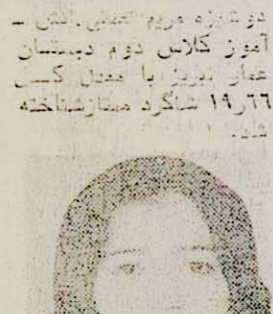 دوشیزه مریم دانش ـ
آموز کلاس دوم دبستان
عمار تبریز با معدل کتبی
۱۹٫۶۶ شاگرد ممتاز شناخته
شد.